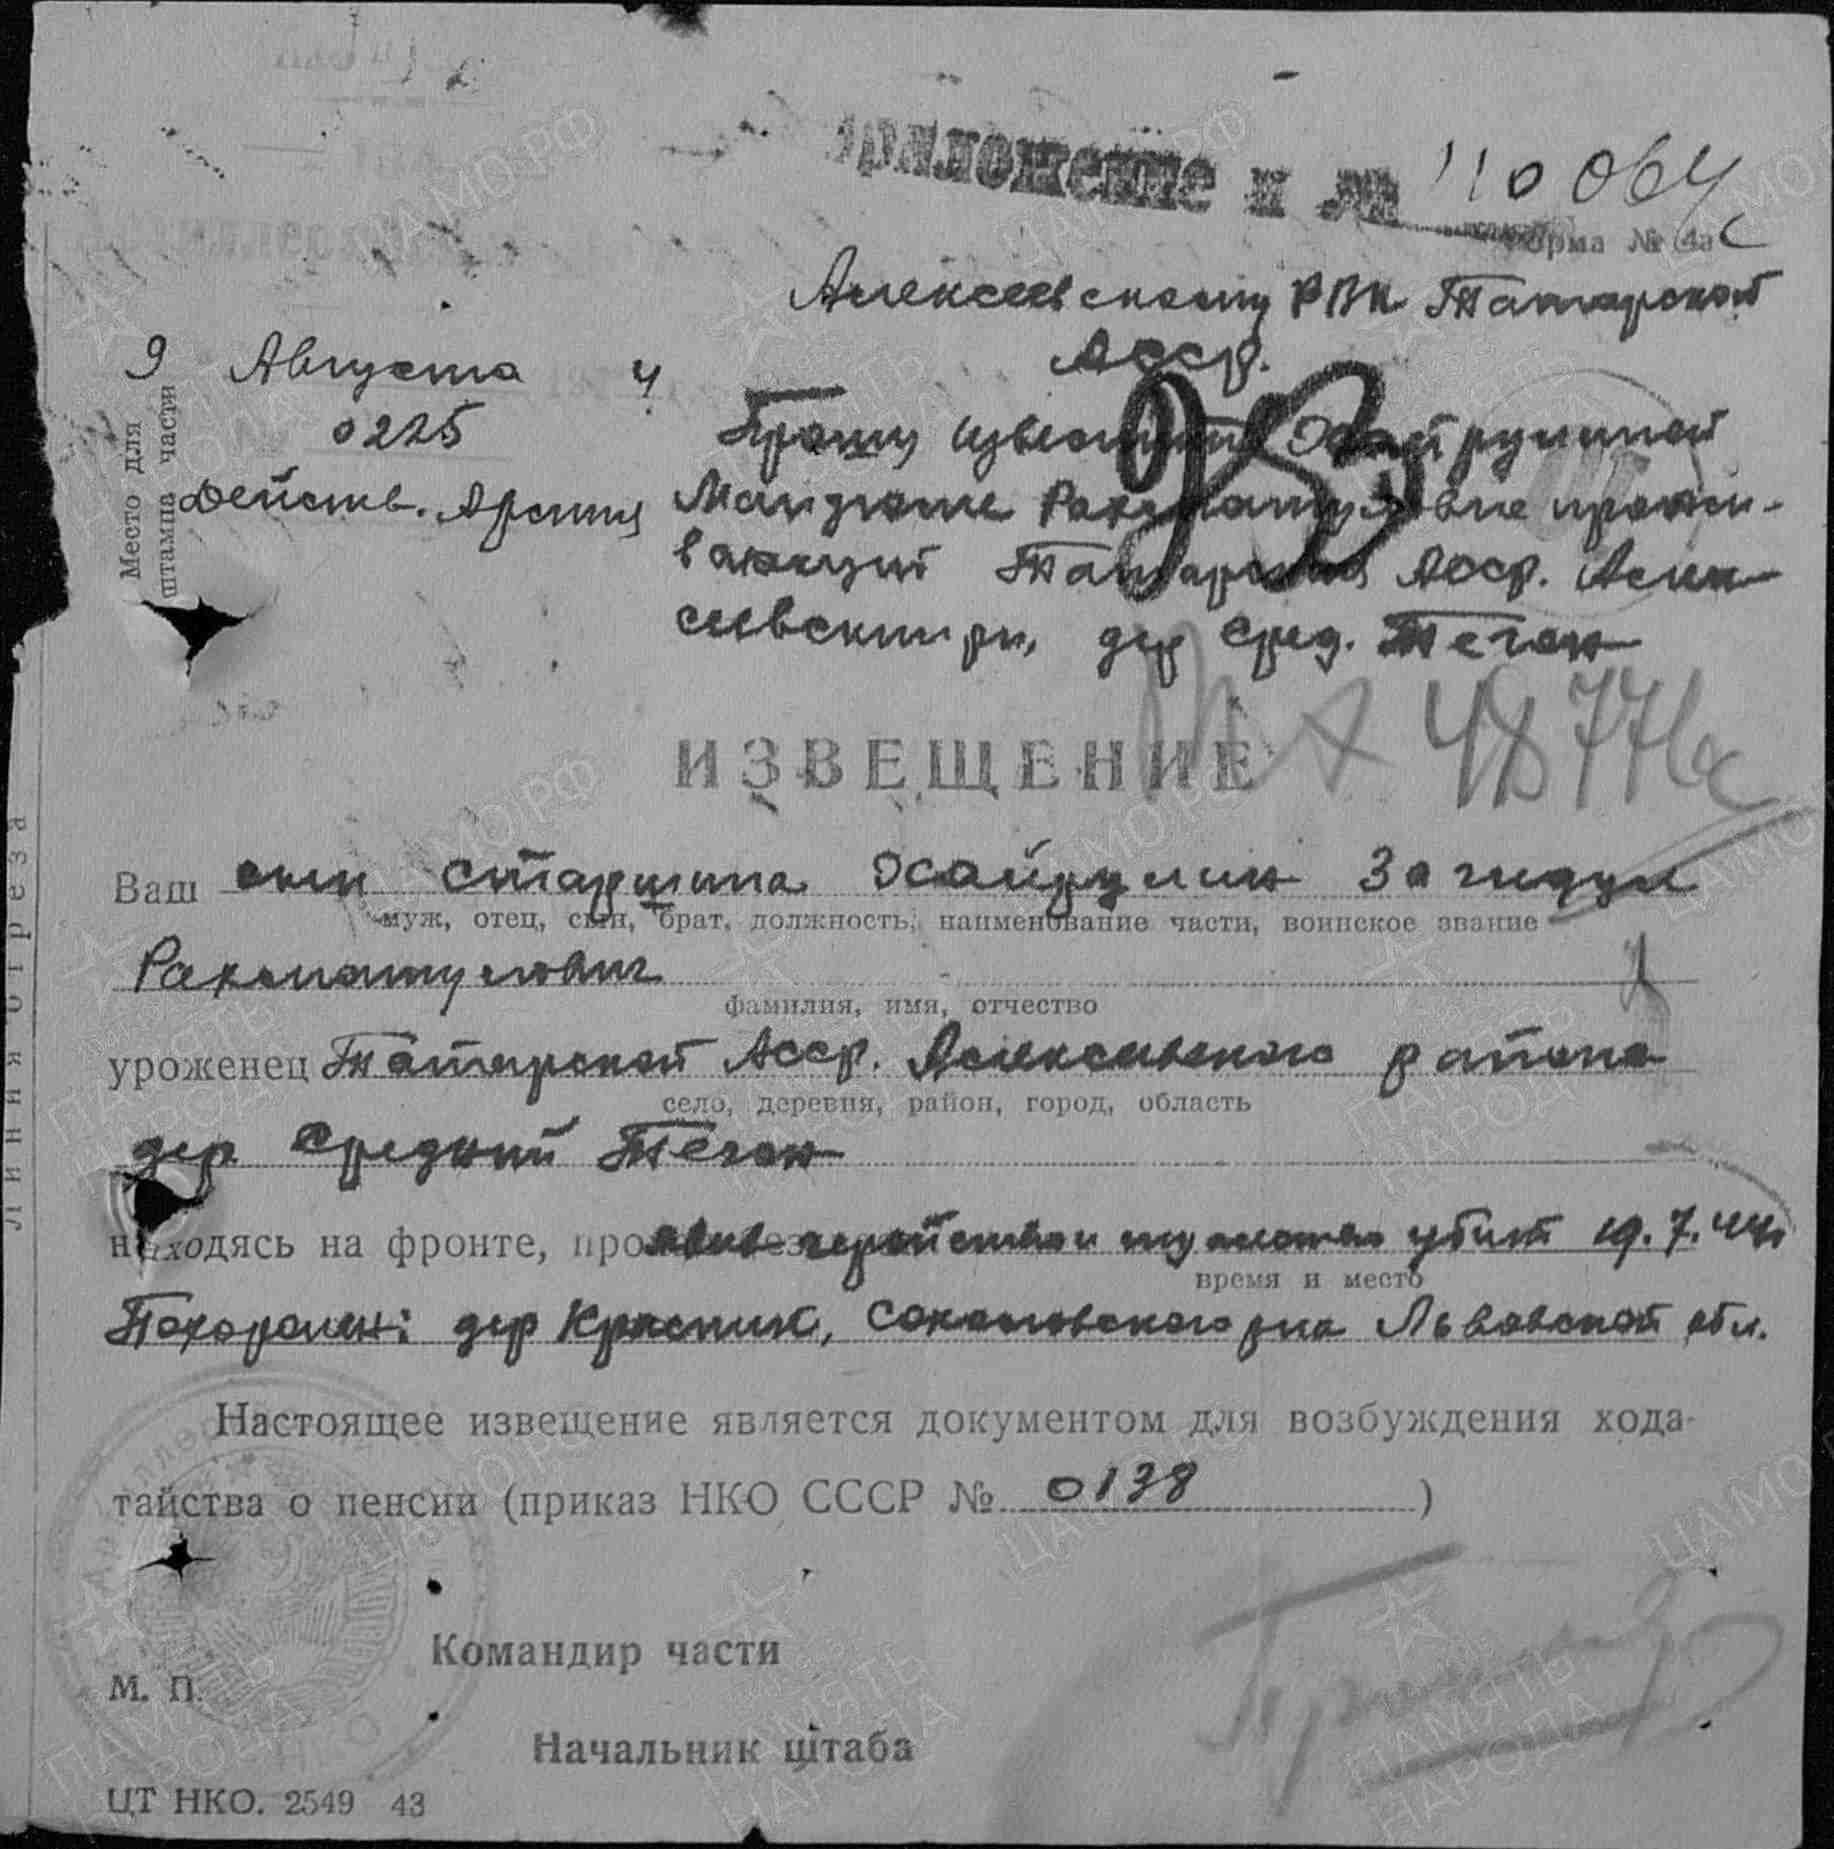 Приложение к № 110064с
Форма № 4а
Алексеевскому РВК Татарской
АССР.
9 Августа 4
0225
Действ. Армия
Место для
штампа части
Прошу известить Хайрулиной
Рахматуловне прожи-
вающий Татарской АССР. Алек-
сеевский рн, дер Сред. Теган
95
48776с
ИЗВЕЩЕНИЕ
Ваш сын старшина Хайрулин Загидул
муж, отец, сын, брат, должность, наименование части, воинское звание
Рахматулович
фамилия, имя, отчество
уроженец Татарской АССР. Алексеевского района
село, деревня, район, город, область
дер. Средний Теган
находясь на фронте, проявив геройство и мужество убит 19.7.44г
время и место
Похоронен: дер Красник, Сокаловского рна Львовской обл.
Настоящее извещение является документом для возбуждения хода-
тайства о пенсии (приказ НКО СССР № 0138)
Командир части
М. П.
Начальник штаба
ЦТ НКО. 2549 43
линия отреза
ЦАМО.РФ
ПАМЯТЬ
НАРОДА